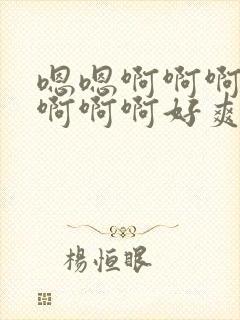 嗯嗯啊啊啊
啊啊啊好爽
楊恒眠